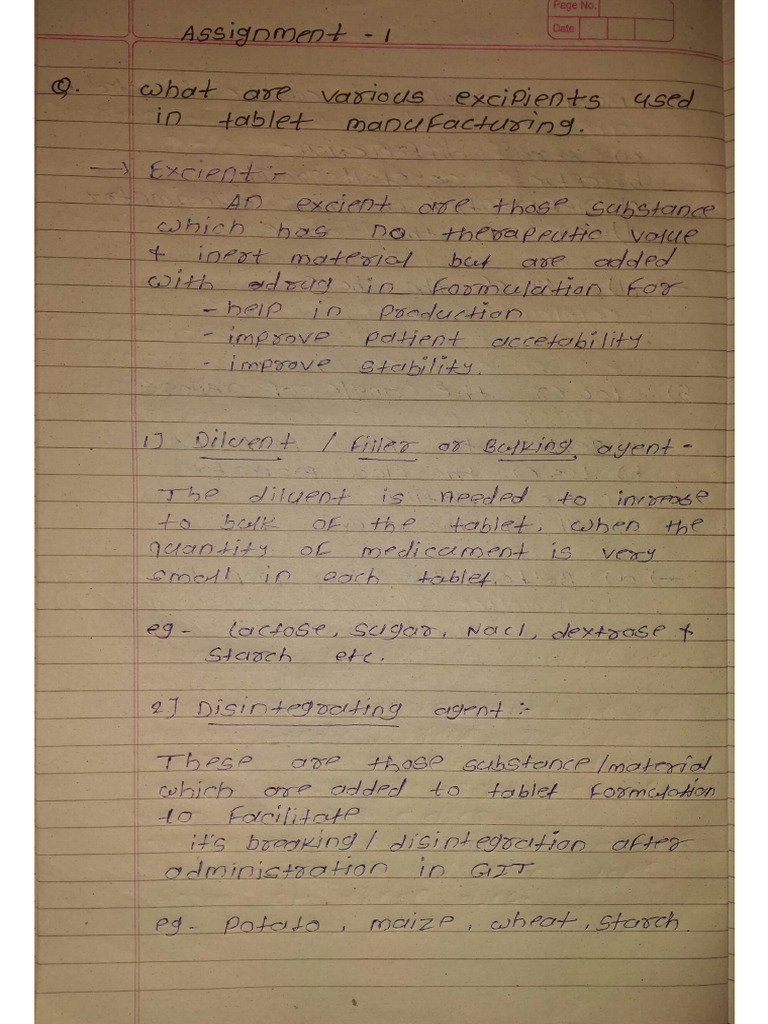 Page No.
Date
Assignment - 1
Q. What are various excipients used
in tablet manufacturing.
→ Excient :-
An excient are those substance
which has no therapeutic value
+ inert material but are added
with drug in formulation for
- help in production
- improve patient accetability.
- improve stability.
1] Diluent / filler or Bulking agent -
The diluent is needed to increase
to bulk of the tablet, when the
quantity of medicament is very
small in each tablet.
eg - lactose, sugar, Nacl, dextrose +
starch etc.
2] Disintegrating agent :-
These are those substance/material
which are added to tablet formulation
to facilitate
it's breaking / disintegration after
administration in GIT
eg - potato, maize, wheat, starch.